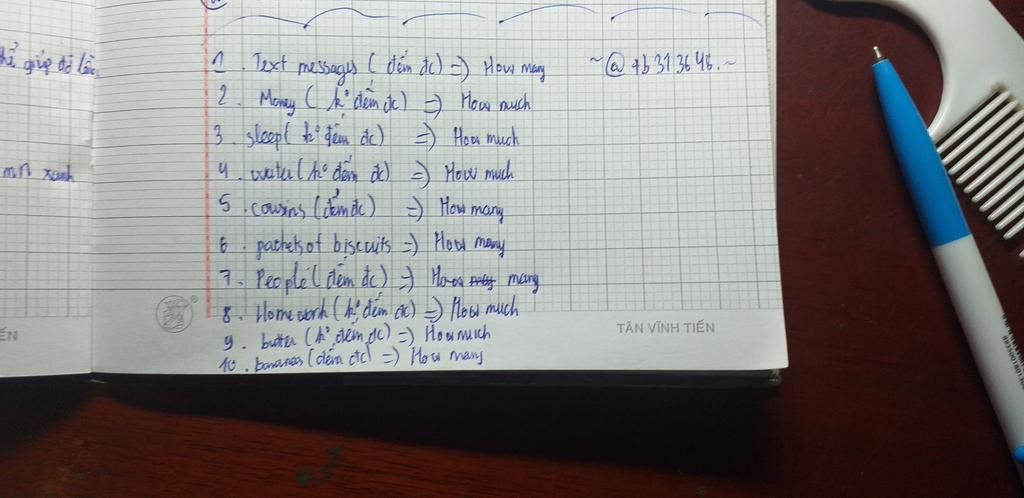 hể giúp đỡ
1. Text messages ( đếm đc) => How many ~@ +b313648.~
2. Money ( k° đếm đc) => How much
3. sleep( k° đếm đc) => How much
4. water (k° đếm đc) => How much
5. cousins (đếm đc) => How many
mn xanh
6. packets of biscuits => How many
7. People (đếm đc) => How many
8. Homework (k° đếm đc) => How much
9. butter (k° đếm đc) => How much
10. bananas (đếm đc) => How many
TÂN VĨNH TIẾN
ẾN